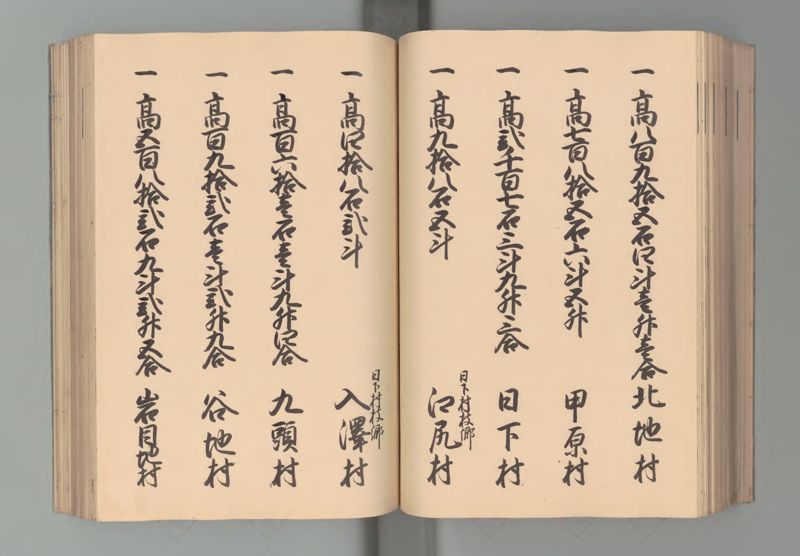 一 高八百九拾五石四斗壱升壱合 北地村
一 高七百八拾五石六斗五升 甲原村
一 高弐千百七石三斗九升三合 日下村
日下村枝郷
一 高九拾八石五斗 江尻村
日下村枝郷
一 高四拾八石弐斗 入澤村
一 高百六拾壱石壱斗九升四合 九頭村
一 高百九拾弐石壱斗弐升九合 谷地村
一 高五百八拾弐石九斗弐升五合 岩目地村